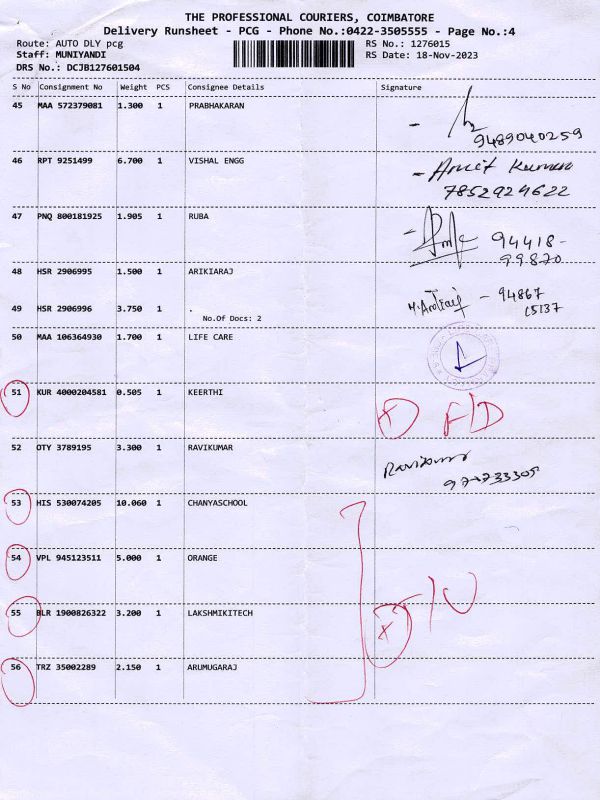 THE PROFESSIONAL COURIERS, COIMBATORE
Delivery Runsheet - PCG - Phone No.:0422-3505555 - Page No.:4
Route: AUTO DLY pcg RS No.: 1276015
Staff: MUNIYANDI RS Date: 18-Nov-2023
DRS No.: DCJB127601504
S No Consignment No Weight PCS Consignee Details Signature
45 MAA 572379081 1.300 1 PRABHAKARAN
9489040259
46 RPT 9251499 6.700 1 VISHAL ENGG Amit Kumar
7852924622
47 PNQ 800181925 1.905 1 RUBA
94418-
99870
48 HSR 2906995 1.500 1 ARIKIARAJ
49 HSR 2906996 3.750 1 . - 94867
No.Of Docs: 2 15137
50 MAA 106364930 1.700 1 LIFE CARE
51 KUR 4000204581 0.505 1 KEERTHI
X F/D
52 OTY 3789195 3.300 1 RAVIKUMAR Ravikumar
53 HIS 530074205 10.060 1 CHANYASCHOOL
54 VPL 945123511 5.000 1 ORANGE
55 BLR 1900826322 3.200 1 LAKSHMIKITECH
X
56 TRZ 35002289 2.150 1 ARUMUGARAJ